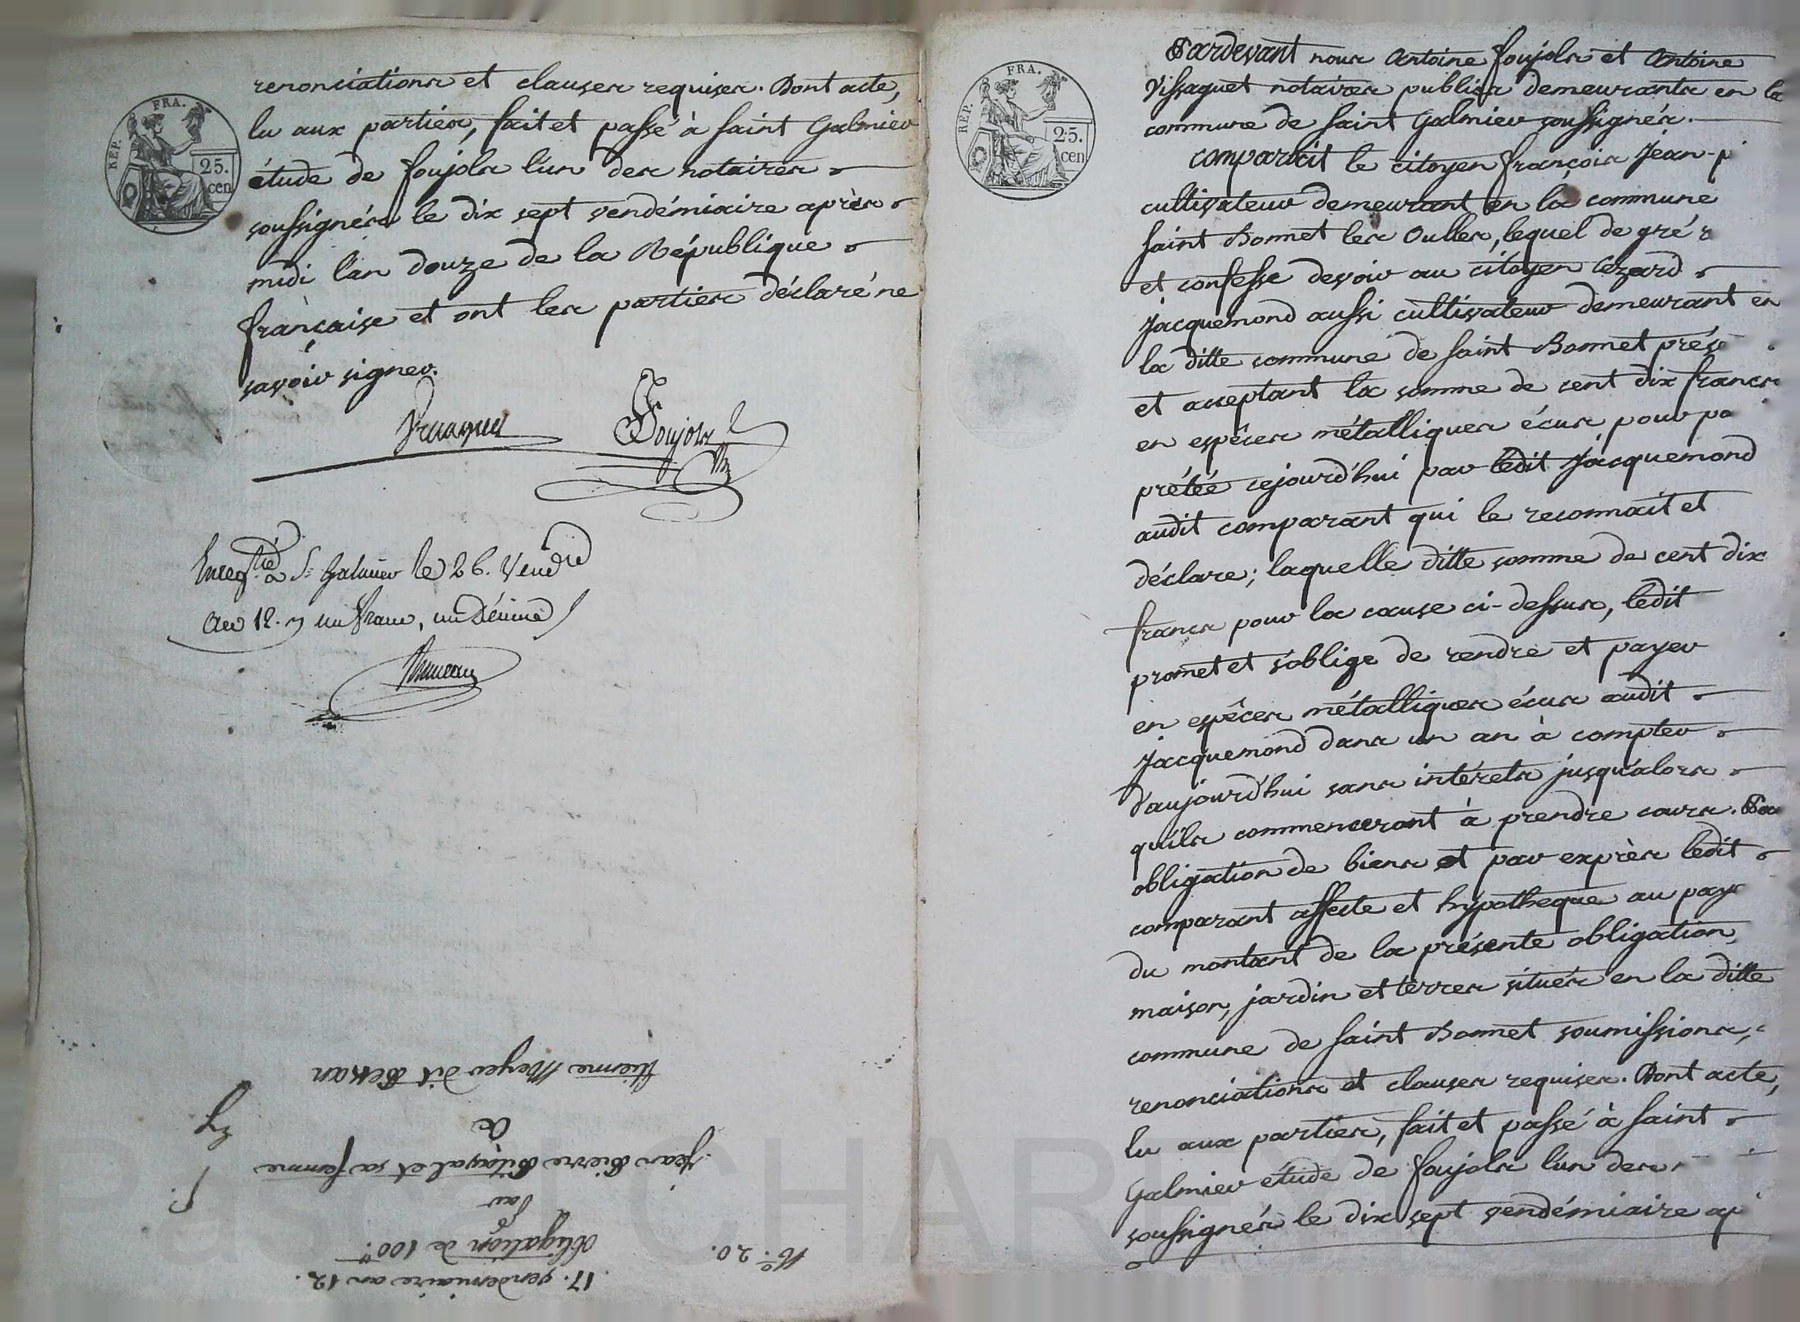 renonciations et clauses requises. Dont acte,
lu aux parties, fait et passé à saint Galmier
étude de foujols l'un des notaires
soussignés le dix sept vendémiaire après
midi l'an douze de la République
française et ont les parties déclaré ne
savoir signer.
Foujols
Enreg.tré à St Galmier le 26. Vend.re
an 12. un franc, un Décime
17. vendemiaire an 12.
N.o 20.
obligation de 100.
par
jean Pierre et sa femme
à
étienne Meyer dit
REP. FRA.
25.
cen
REP. FRA.
25.
cen
Pardevant nous Antoine foujols et Antoine
Vissaguet notaires publics demeurants en la
commune de saint Galmier soussignés.
comparait le citoyen françois Jean-
cultivateur demeurant en la commune
saint Bonnet les Oulles, lequel de gré
et confesse devoir au citoyen Cezard
Jacquemond aussi cultivateur demeurant en
la ditte commune de saint Bonnet prés
et acceptant la somme de cent dix francs
en espêces métalliques écus pour pa
prétée cejourd'hui par ledit Jacquemond
audit comparant qui le reconnait et
déclare; laquelle ditte somme de cent dix
francs pour la cause ci-dessus, ledit
promet et s'oblige de rendre et payer
en espêces métalliques écus audit
Jacquemond dans un an à compter
d'aujourd'hui sans intérets jusqu'alors
qu'ils commenceront à prendre cours. Par
obligation de biens et par exprès ledit
comparant affecte et hypotheque au paye
du montant de la présente obligation,
maison, jardin et terres situés en la ditte
commune de saint Bonnet soumissions,
renonciations et clauses requises. Dont acte,
lu aux parties, fait et passé à saint
Galmier étude de foujols l'un des
soussignés le dix sept vendémiaire ap
Pascal CHAR